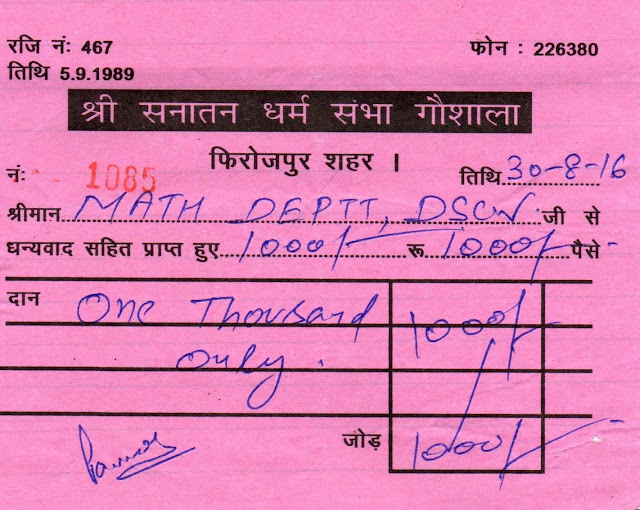 रजि नं: 467 फोन : 226380
तिथि 5.9.1989
श्री सनातन धर्म संभा गौशाला
फिरोजपुर शहर ।
नं: 1085 तिथि 30-8-16
श्रीमान MATH DEPTT, DSCW जी से
धन्यवाद सहित प्राप्त हुए 1000/- रू 1000/- पैसे
दान One Thousand 1000/-
only.
जोड़ 1000/-